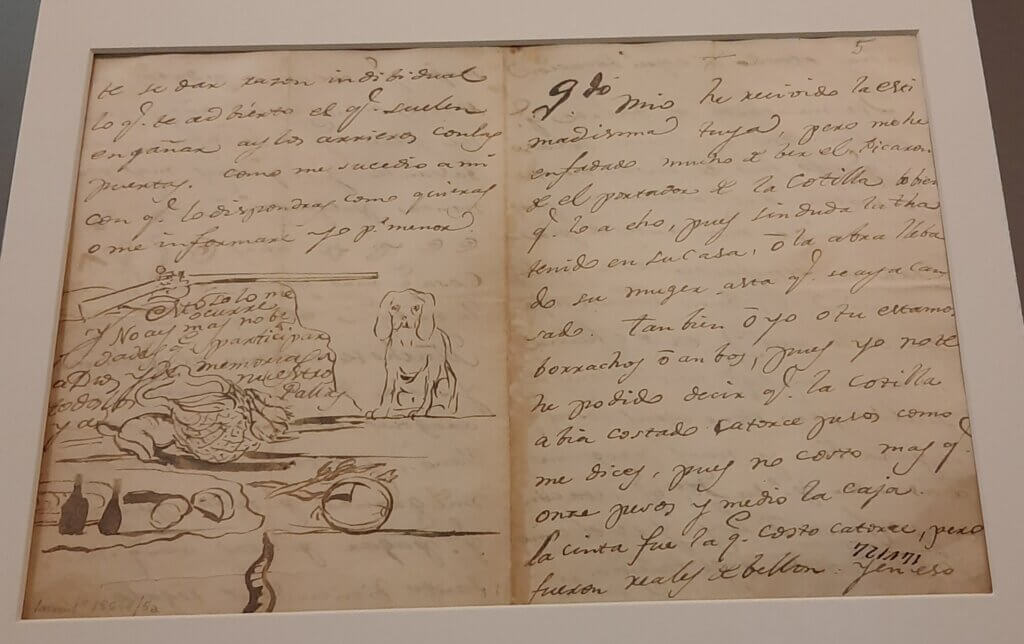 te se dar razon indibidual
lo q.e te adbierto el q.e suelen
engañar a los arrieros con las
puertas. como me sucedio a mi
con q.e lo dispondras como quieras
o me informaré yo p.r menor.
Esto solo me
ocurre
y No ay mas nobe
dades q.e participar
a Dios y memorias a
todos los nuestro
y a Pallas
5
Qdo Mio he recivido la esti
madisima tuya, pero me he
enfadado mucho de ber el Picaron
de el portador de la Cotilla lo bien
q.e lo a echo, pues sin duda la tha
tenido en su Casa, ô la abra leba
do su muger asta q.e se aya can
sado. Tanbien ô yo o tu estamos
borrachos ô anbos, pues yo no te
he podido decir q.e la Cotilla
abia costado Catorce pesos como
me dices, pues no costo mas q.e
onze pesos y medio la caja.
la cinta fue la q.e costo catorce, pero
fueron reales de bellon. y en eso